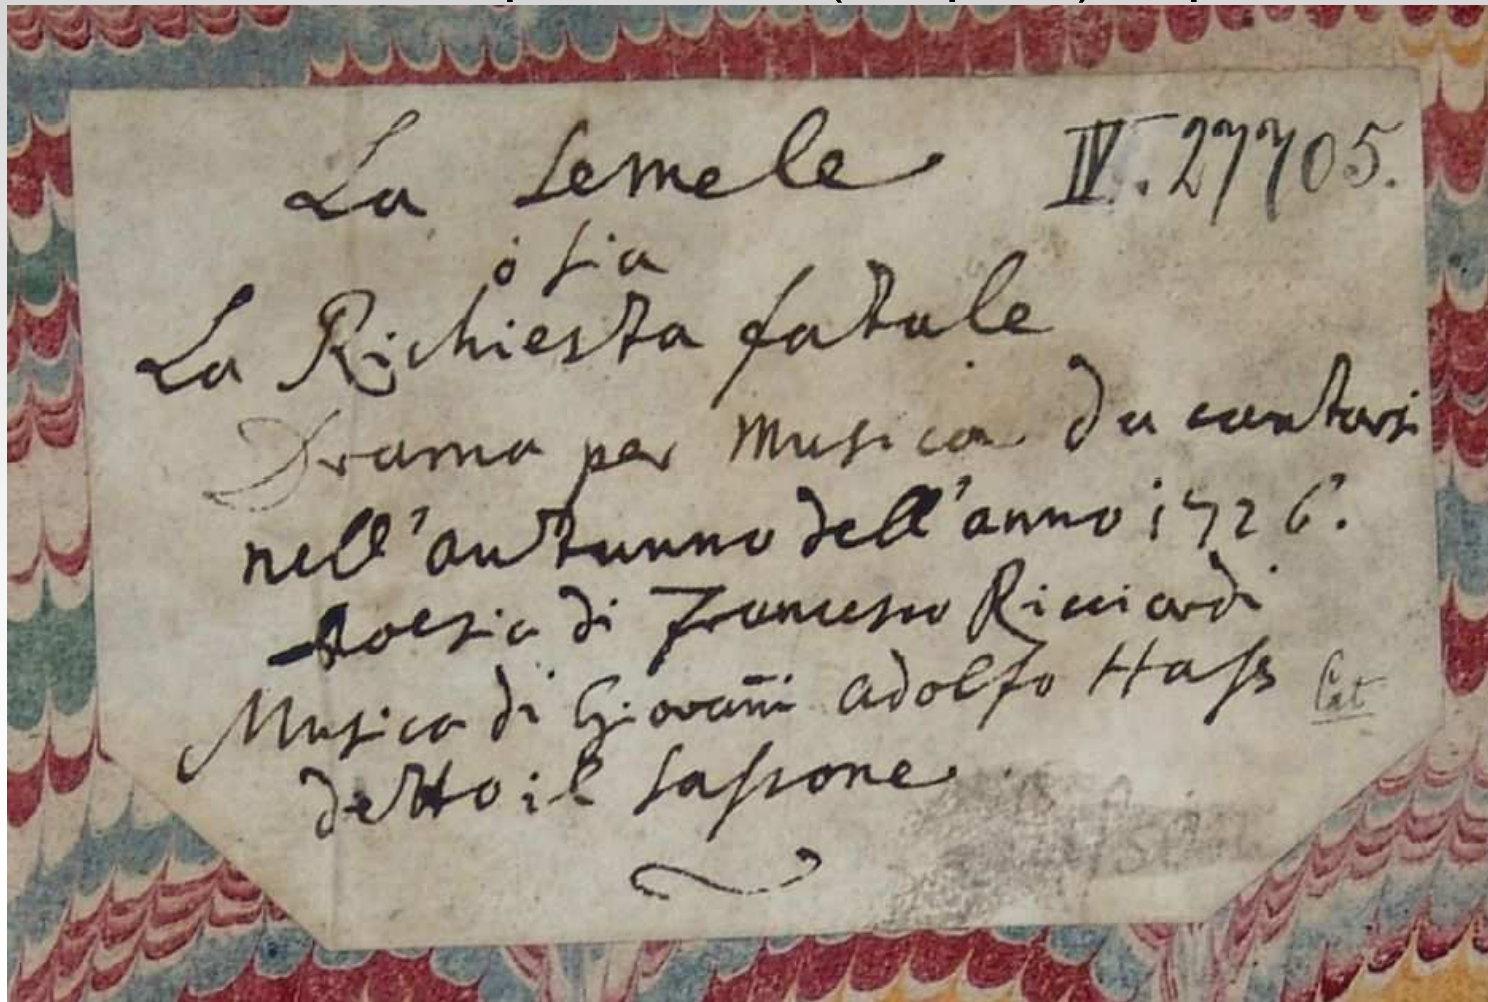 La Semele IV. 27705.
ò sia
La Richiesta fatale
Drama per Musica da cantarsi
nell'autunno dell'anno 1726.
Poesia di Francesco Ricciardi
Musica di Giovan̄i Adolfo Hass Cat
detto il Sassone